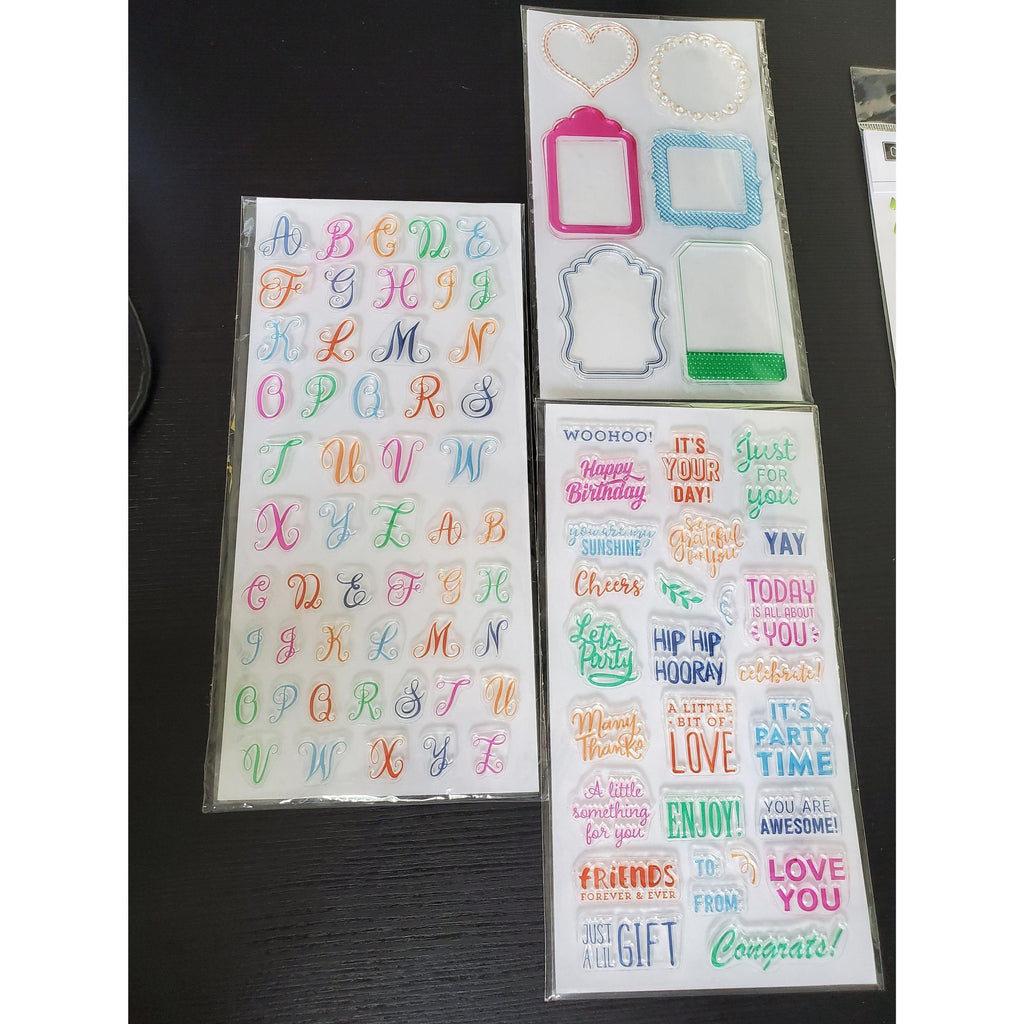 A B C D E
F G H I J
K L M N
O P Q R S
T U V W
X Y Z A B
C D E F G H
I J K L M N
O P Q R S T U
V W X Y Z
WOOHOO!
Happy
Birthday
IT'S
YOUR
DAY!
Just
FOR
you
you are my
SUNSHINE
So
grateful
for you
YAY
Cheers
TODAY
IS ALL ABOUT
YOU
Let's
Party
HIP HIP
HOORAY
celebrate!
Many
Thanks
A LITTLE
BIT OF
LOVE
IT'S
PARTY
TIME
A little
something
for you
ENJOY!
YOU ARE
AWESOME!
FRIENDS
FOREVER & EVER
TO:
FROM:
LOVE
YOU
JUST
A LIL
GIFT
Congrats!